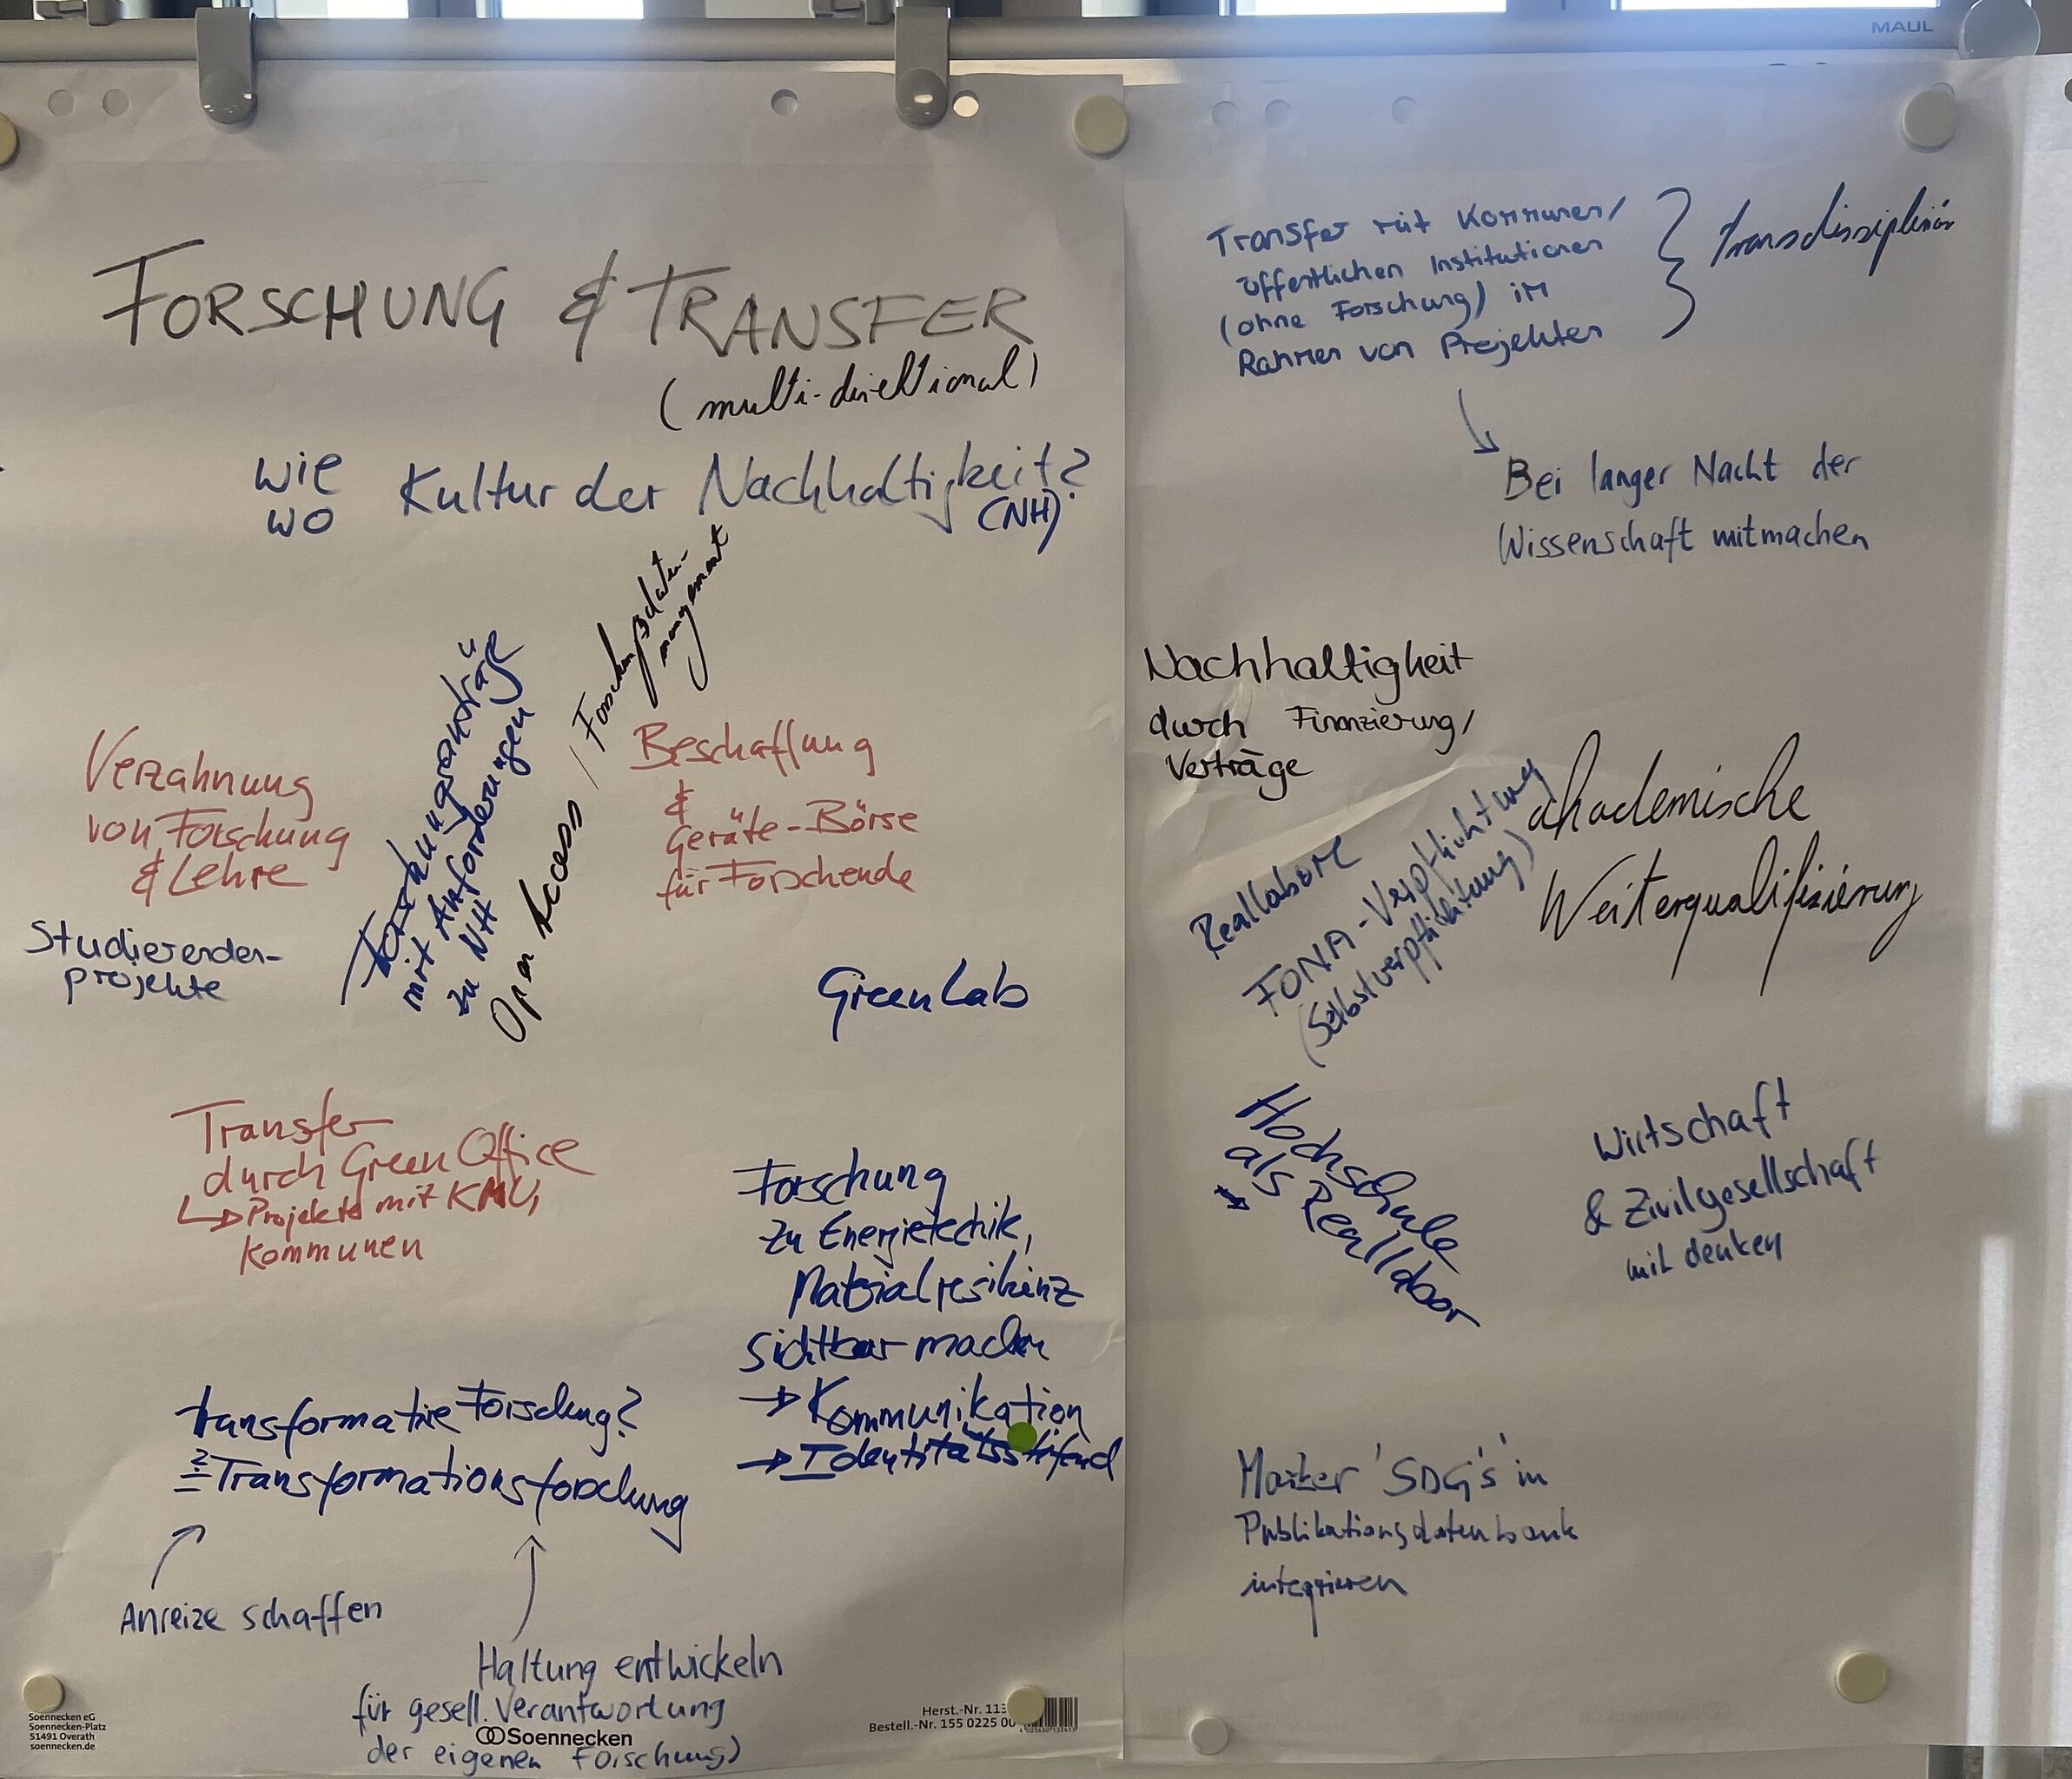 MAUL
FORSCHUNG & TRANSFER
(multi-direktional)
wie
wo
Kultur der Nachhaltigkeit?
(NH)
Forschungsanträge
mit Anforderungen
zu NH
Open Access / Forschungsdaten-
management
Verzahnung
von Forschung
& Lehre
Beschaffung
&
Geräte-Börse
für Forschende
Studierenden-
projekte
Green Lab
Transfer
durch Green Office
↳ Projekte mit KMU,
Kommunen
Forschung
zu Energietechik,
Materialresilienz
sichtbar machen
→ Kommunikation
→ Identitätsstifend
transformative Forschung?
≟ Transformationsforschung
Anreize schaffen
Haltung entwickeln
für gesell. Verantwortung
der eigenen Forschung)
Soennecken eG
Soennecken-Platz
51491 Overath
soennecken.de
Soennecken
Herst.-Nr. 113
Bestell.-Nr. 155 0225 00
Transfer mit Kommunen/
öffentlichen Institutionen
(ohne Forschung) im
Rahmen von Projekten
} transdissiplinär
Bei langer Nacht der
Wissenschaft mitmachen
Nachhaltigkeit
durch Finanzierung/
Verträge
Reallabore
FONA-Verpflichtung
(Selbstverpflichtung)
akademische
Weiterqualifizierung
Hochschule
als Reallabor
Wirtschaft
& Zivilgesellschaft
mit denken
Marker 'SDG's' in
Publikationsdatenbank
integrieren